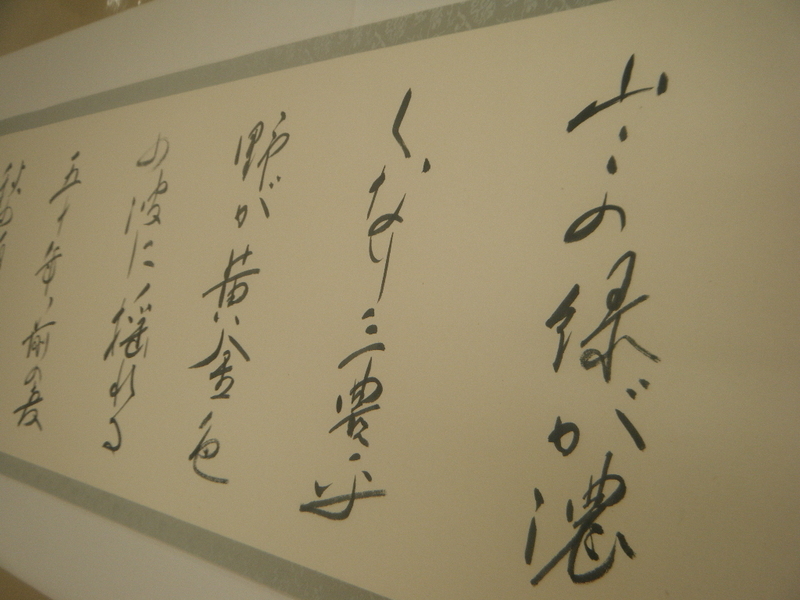 山々の緑が濃
くなり三豊平
野が黄金色
の波に揺れる
五十年前の夏